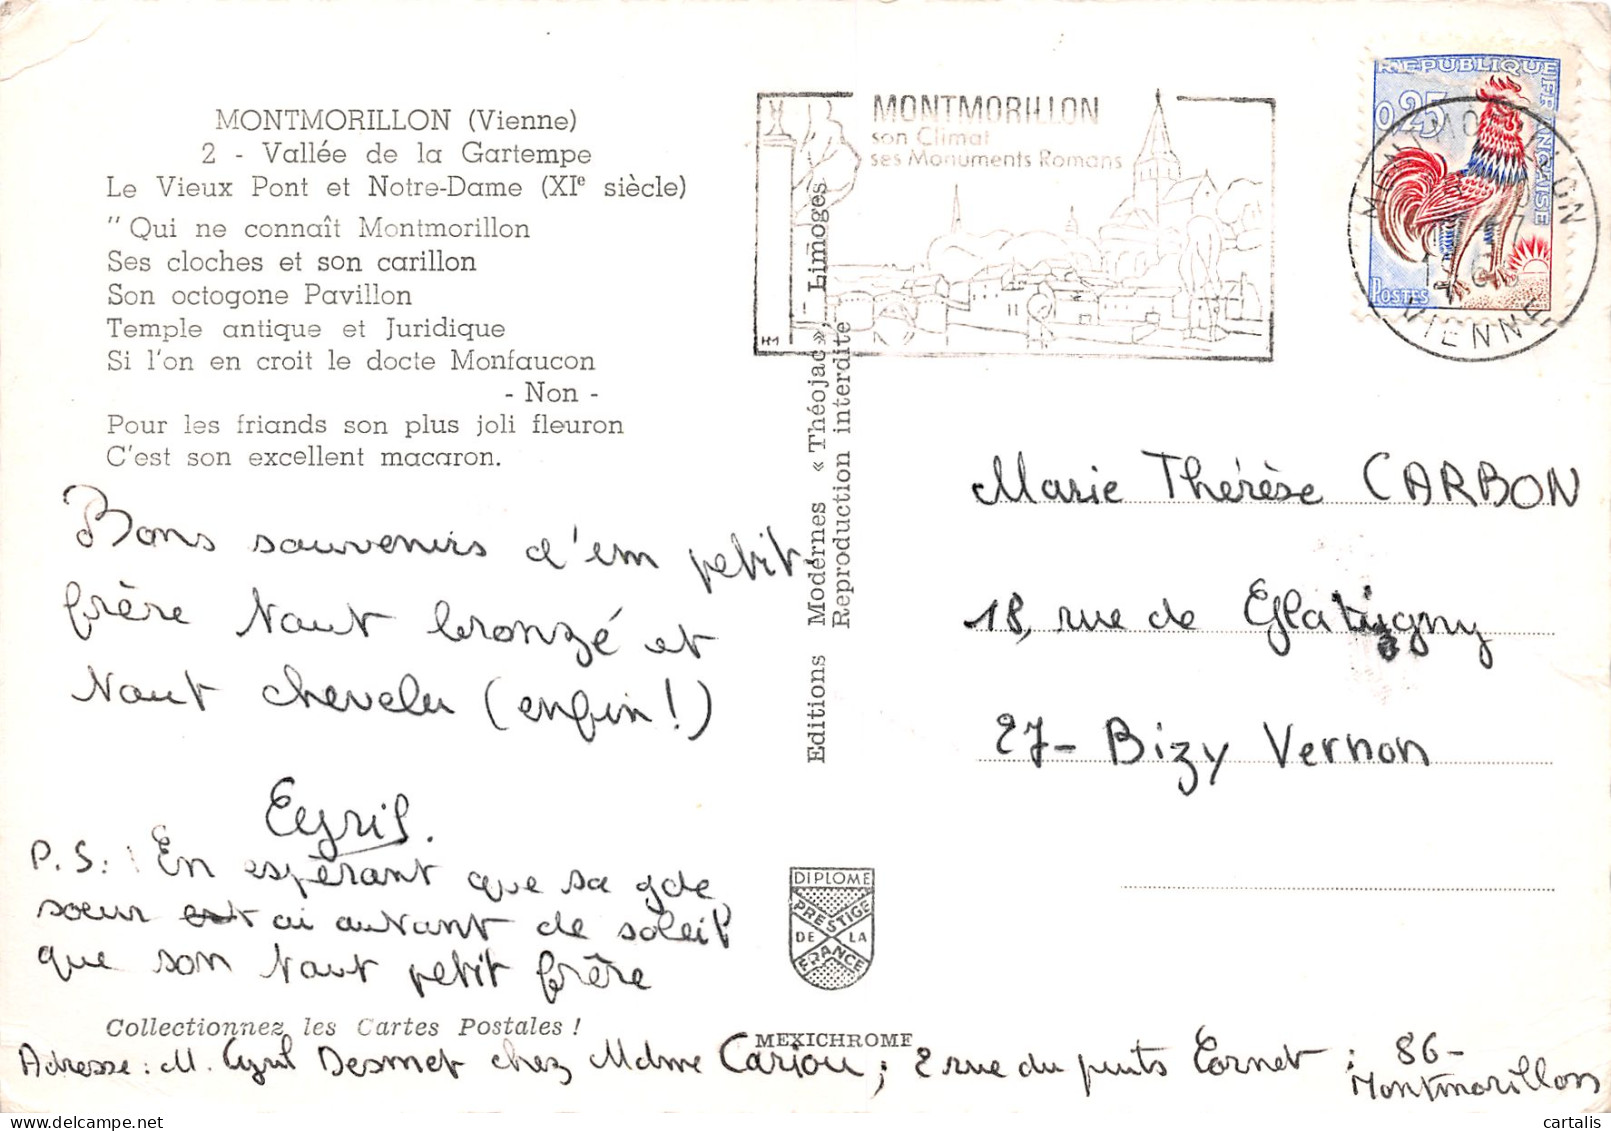 MONTMORILLON (Vienne)
2 - Vallée de la Gartempe
Le Vieux Pont et Notre-Dame (XIe siècle)
" Qui ne connaît Montmorillon
Ses cloches et son carillon
Son octogone Pavillon
Temple antique et Juridique
Si l'on en croit le docte Monfaucon
- Non -
Pour les friands son plus joli fleuron
C'est son excellent macaron.
Bons souvenirs d'un petit
frère tout bronzé et
tout chevelu (enfin!)
Cyril.
P.S: En espérant que sa gde
soeur ai autant de soleil
que son tout petit frère
Collectionnez les Cartes Postales !
Adresse: M. Cyril Desmet chez Mdme Cariou; 2 rue du puits Cornet; 86-
Montmorillon
Editions Modernes « Théojac », Limoges
Reproduction interdite
DIPLOME
PRESTIGE
DE LA
FRANCE
MEXICHROME
MONTMORILLON
son Climat
ses Monuments Romans
HM
REPUBLIQUE FRANÇAISE
0,25
POSTES
MONTMORILLON
VIENNE
Marie Thérèse CARBON
18, rue de Eglatigny
27- Bizy Vernon
cartalis